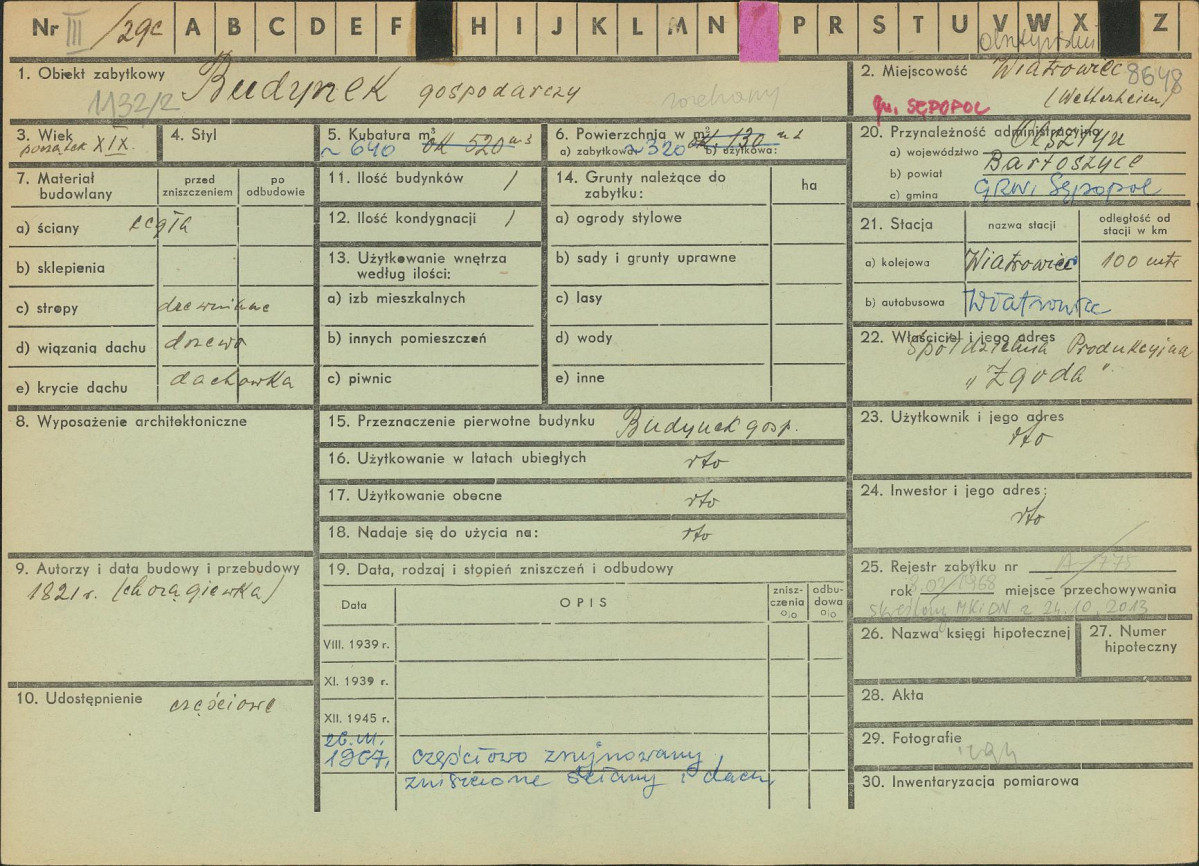 Nr III /29c A B C D E F H I J K L M N P R S T U V W X Z
1. Obiekt zabytkowy Budynek gospodarczy
1132/2
2. Miejscowość Wiatrowiec 8648
(Wetterheim)
gm. SĘPOPOL
3. Wiek
początek XIX.
4. Styl
5. Kubatura m³ ok 520 m3
~ 640
6. Powierzchnia w m² ok 130 m2
a) zabytkowa ~ 320 b) użytkowa:
7. Materiał budowlany
przed zniszczeniem
po odbudowie
a) ściany cegła
b) sklepienia
c) stropy drewniane
d) wiązania dachu drzewo
e) krycie dachu dachówka
8. Wyposażenie architektoniczne
9. Autorzy i data budowy i przebudowy
1821 r. (chorągiewka)
10. Udostępnienie częściowe
11. Ilość budynków 1
12. Ilość kondygnacji 1
13. Użytkowanie wnętrza
według ilości:
a) izb mieszkalnych
b) innych pomieszczeń
c) piwnic
14. Grunty należące do
zabytku:
ha
a) ogrody stylowe
b) sady i grunty uprawne
c) lasy
d) wody
e) inne
15. Przeznaczenie pierwotne budynku Budynek gosp.
16. Użytkowanie w latach ubiegłych
17. Użytkowanie obecne
18. Nadaje się do użycia na:
19. Data, rodzaj i stopień zniszczeń i odbudowy
Data
OPIS
znisz-
czenia
%
odbu-
dowa
%
VIII. 1939 r.
XI. 1939 r.
XII. 1945 r.
1967. częściowo zrujnowany
zniszczone ściany i dach
20. Przynależność administracyjna
a) województwo Olsztyn
b) powiat Bartoszyce
c) gmina GRN, Sępopol
21. Stacja
nazwa stacji
odległość od
stacji w km
a) kolejowa Wiatrowiec 100 mtr
b) autobusowa Wiatrowiec
22. Właściciel i jego adres
Spółdzielnia Produkcyjna
„Zgoda"
23. Użytkownik i jego adres
24. Inwestor i jego adres:
25. Rejestr zabytku nr A/775
rok 8 02/1968 miejsce przechowywania
skreślony MKiDN z 24.10.2013
26. Nazwa księgi hipotecznej
27. Numer
hipoteczny
28. Akta
29. Fotografie
30. Inwentaryzacja pomiarowa